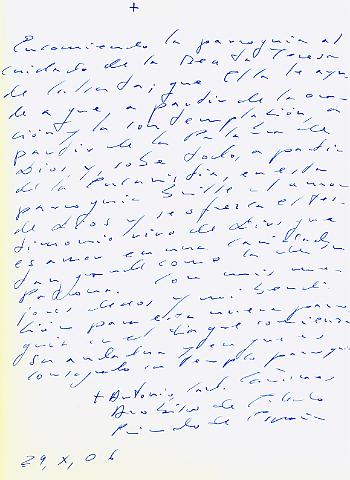 +
Encomiendo la parroquia al
cuidado de la Beata Teresa
de Calcuta; que Ella le ayu
de a que a partir de la ora
ción y la contemplación, a
partir de la Palabra de
Dios, y, sobre todo, a partir
de la Eucaristía, en esta
parroquia brille el amor
de Dios y se ofrezca el tes-
timonio vivo de Dios, que
es amor en una caridad
tan grande como la de su
Patrona. Con mis me-
jores deseos y mi bendi
ción para esta nueva parro
quia en el día que comienza
su andadura y en que es
consagrado su templo parroquial
+ Antonio, Card. Cañizares
Arzobispo de Toledo
Primado de España
29, X, 06